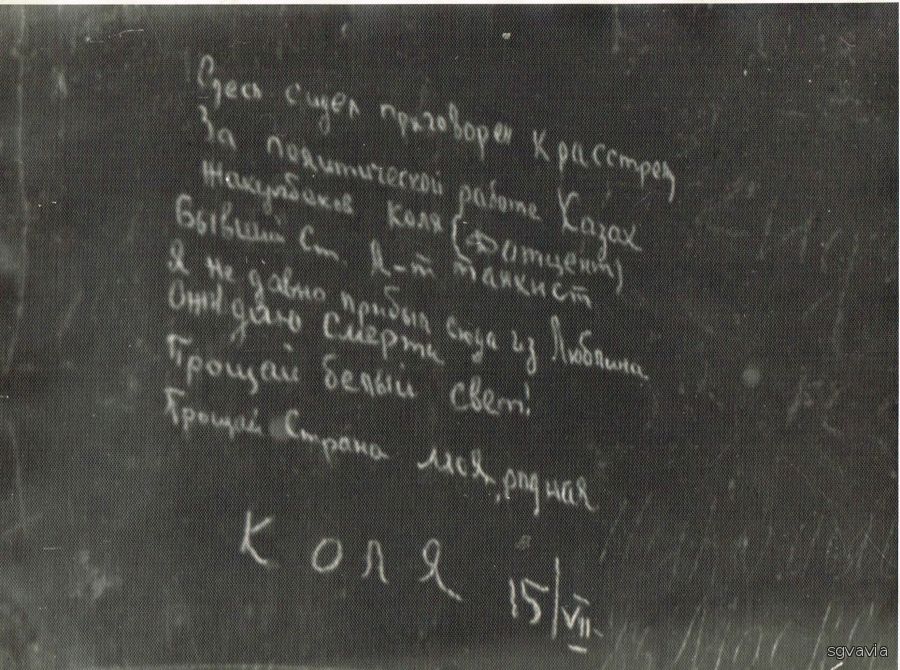 Сдесь сидел приговорен к расстрел
За политической работе Казах
Жакупбаков Коля {Датцент)
Бывший Ст. Л-т танкист
Я не давно прибыл сюда из Люблина
Ожидаю смерти
Прощай белый свет!
Прощай Страна моя, родная
Коля 15/VII
sgvavia